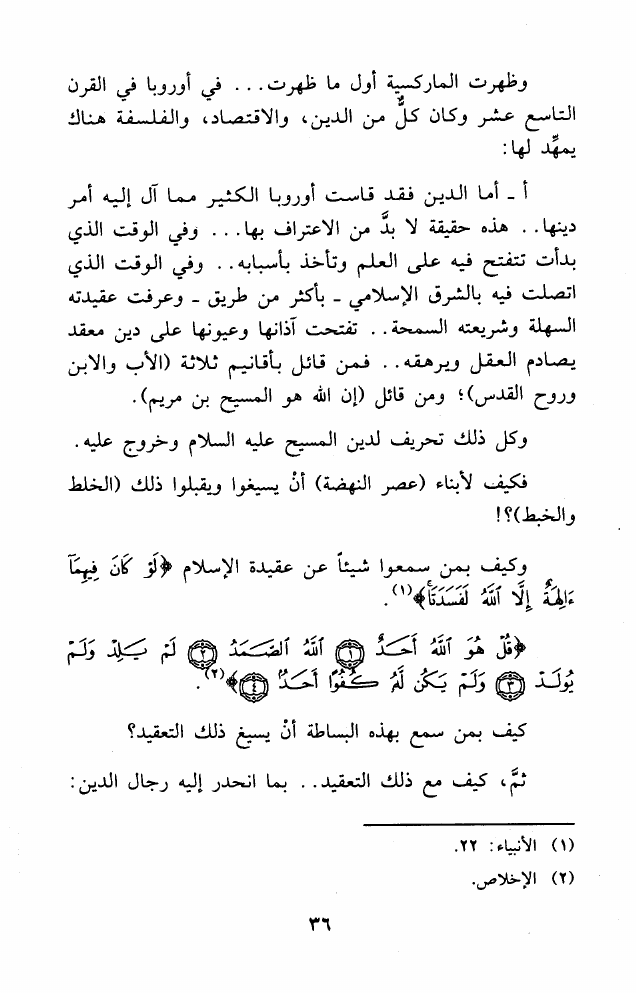 وظهرت الماركسية أول ما ظهرت... في أوروبا في القرن
التاسع عشر وكان كلٌّ من الدين، والاقتصاد، والفلسفة هناك
يمهِّد لها:
أ ـ أما الدين فقد قاست أوروبا الكثير مما آل إليه أمر
دينها.. هذه حقيقة لا بدَّ من الاعتراف بها... وفي الوقت الذي
بدأت تتفتح فيه على العلم وتأخذ بأسبابه.. وفي الوقت الذي
اتصلت فيه بالشرق الإسلامي ـ بأكثر من طريق ـ وعرفت عقيدته
السهلة وشريعته السمحة.. تفتحت آذانها وعيونها على دين معقد
يصادم العقل ويرهقه.. فمن قائل بأقانيم ثلاثة (الأب والابن
وروح القدس)؛ ومن قائل (إن الله هو المسيح بن مريم).
وكل ذلك تحريف لدين المسيح عليه السلام وخروج عليه.
فكيف لأبناء (عصر النهضة) أنْ يسيغوا ويقبلوا ذلك (الخلط
والخبط)؟!
وكيف بمن سمعوا شيئاً عن عقيدة الإسلام ﴿لَوْ كَانَ فِيهِمَآ
ءَالِهَةٌ إِلَّا ٱللَّهُ لَفَسَدَتَاۚ﴾(١).
﴿قُلْ هُوَ ٱللَّهُ أَحَدٌ ١ ٱللَّهُ ٱلصَّمَدُ ٢ لَمْ يَلِدْ وَلَمْ
يُولَدْ ٣ وَلَمْ يَكُن لَّهُ كُفُوًا أَحَدٌ ٤﴾(٢).
كيف بمن سمع بهذه البساطة أنْ يسيغ ذلك التعقيد؟
ثمَّ، كيف مع ذلك التعقيد.. بما انحدر إليه رجال الدين:
(١) الأنبياء: ٢٢.
(٢) الإخلاص.
٣٦